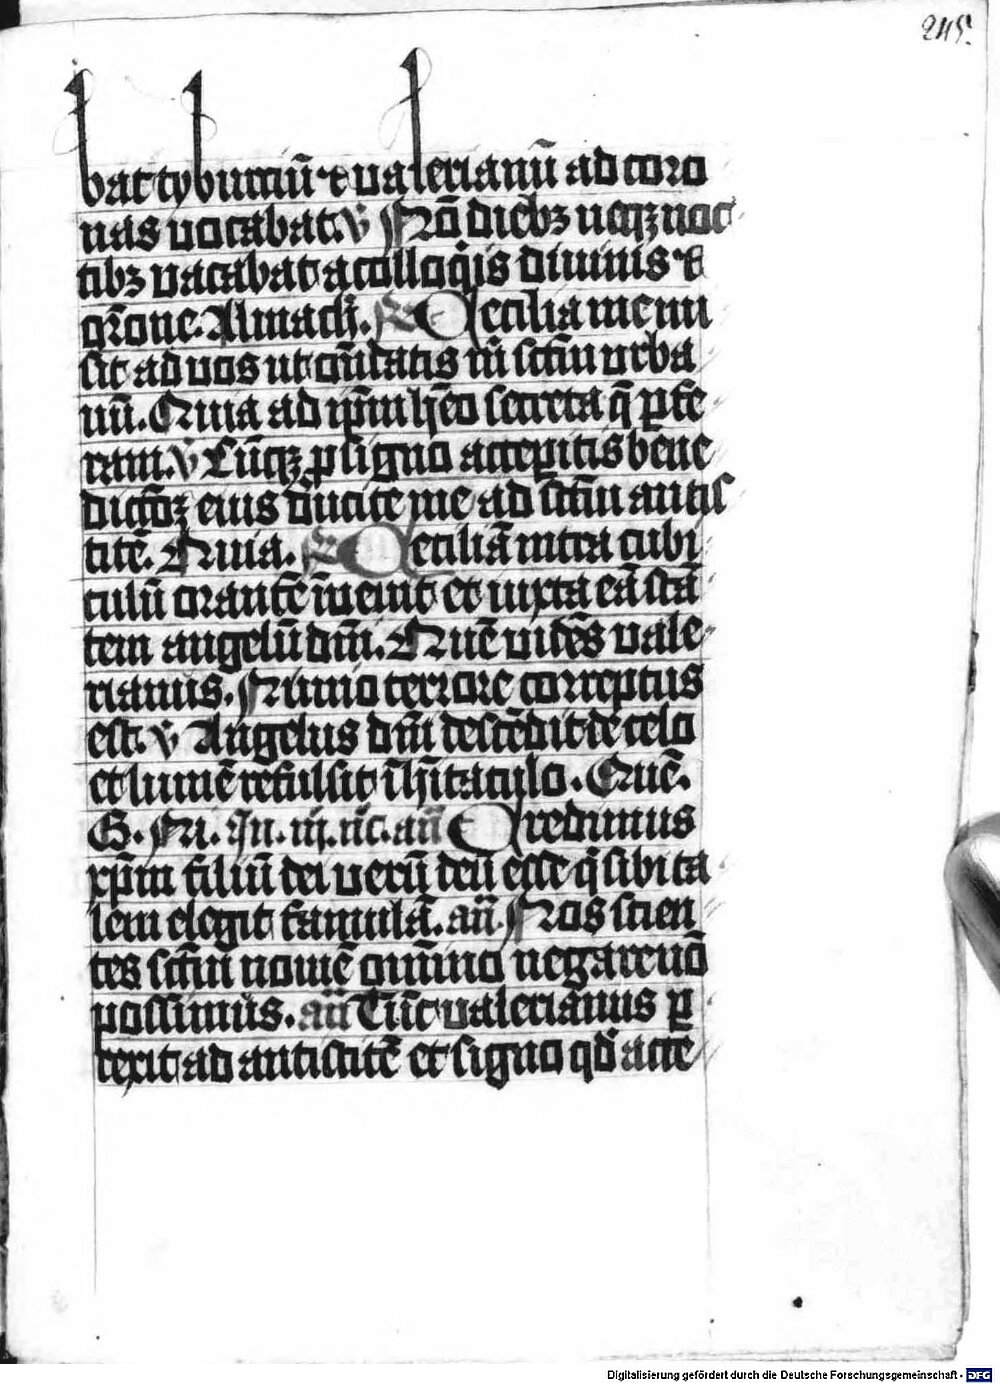 245.
bat tyburciū et valerianū ad coro
nas vocabat. v̄ Nō diebꝫ neqꝫ noc
tibꝫ vacabat a colloqͥis diuinis et
or̄one. Almach. R Cecilia me mi
sit ad vos ut oñdatis m̄ sctm̄ vrba
nū. Quia ad ip̄m h̄eo secreta q̄ ꝑfe
ram. v̄ Tūcqꝫ ꝑ signo acceꝑitis bene
dictōꝫ eius ducite me ad sctm̄ antis
titē. Quia. R Ceciliā intra cubi
culū orantē īuenit et iuxta eā stā
tem angelū dm̄. Quē vidēs vale
rianus. Nimio terrore correptus
est. v̄ Angelus dm̄ descēdit de celo
et lumē refulsit ī h̄itaculo. Quē.
G. Pri. In. iij. nc̄. an̄ Credimus
xp̄m filiū dei verū deū esse q̄ sibi ta
lem elegit famulā. an̄. Nos scien
tes sctm̄ nomē om̄ino negare nō
possimus. an̄ Tūc valerianus ꝑ
rexit ad antistitē et signo qd̄ acce
Digitalisierung gefördert durch die Deutsche Forschungsgemeinschaft - DFG